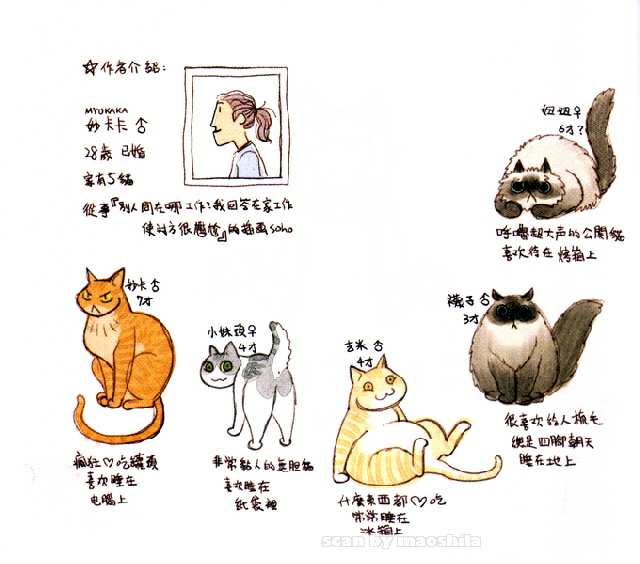 ☆作者介紹:
MYUKAKA
妙卡卡 ♂
28歲 已婚
家有5貓
從事『別人問在哪工作?我回答在家工作
使對方很尷尬』的插画soho
妞妞♀
6才?
呼嚕超大声的公關貓
喜欢待在 烤箱上
妙卡 ♂
7才
瘋狂♡吃罐頭
喜歡睡在
电腦上
小妹 ♀
4才
非常黏人的無胆貓
喜欢睡在
紙袋裡
吉米 ♂
4才
什麼東西都♡吃
常常睡在
冰箱上
襪子 ♂
3才
很喜欢給人梳毛
總是四腳朝天
睡在地上
scan by maoshila